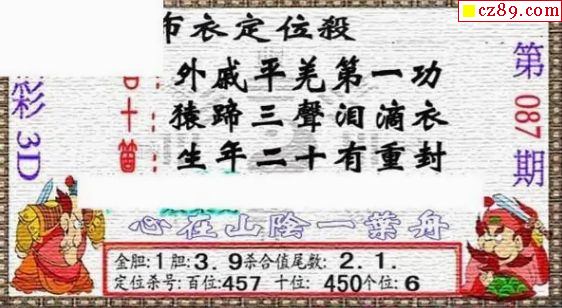 cz89.com
布衣定位殺
彩 3D
第 087 期
外戚平羌第一功
猿蹄三聲泪滴衣
生年二十有重封
心在山陰一葉舟
金胆:1胆:3.9杀合值尾数:2.1.
定位杀号:百位:457 十位:450个位:6